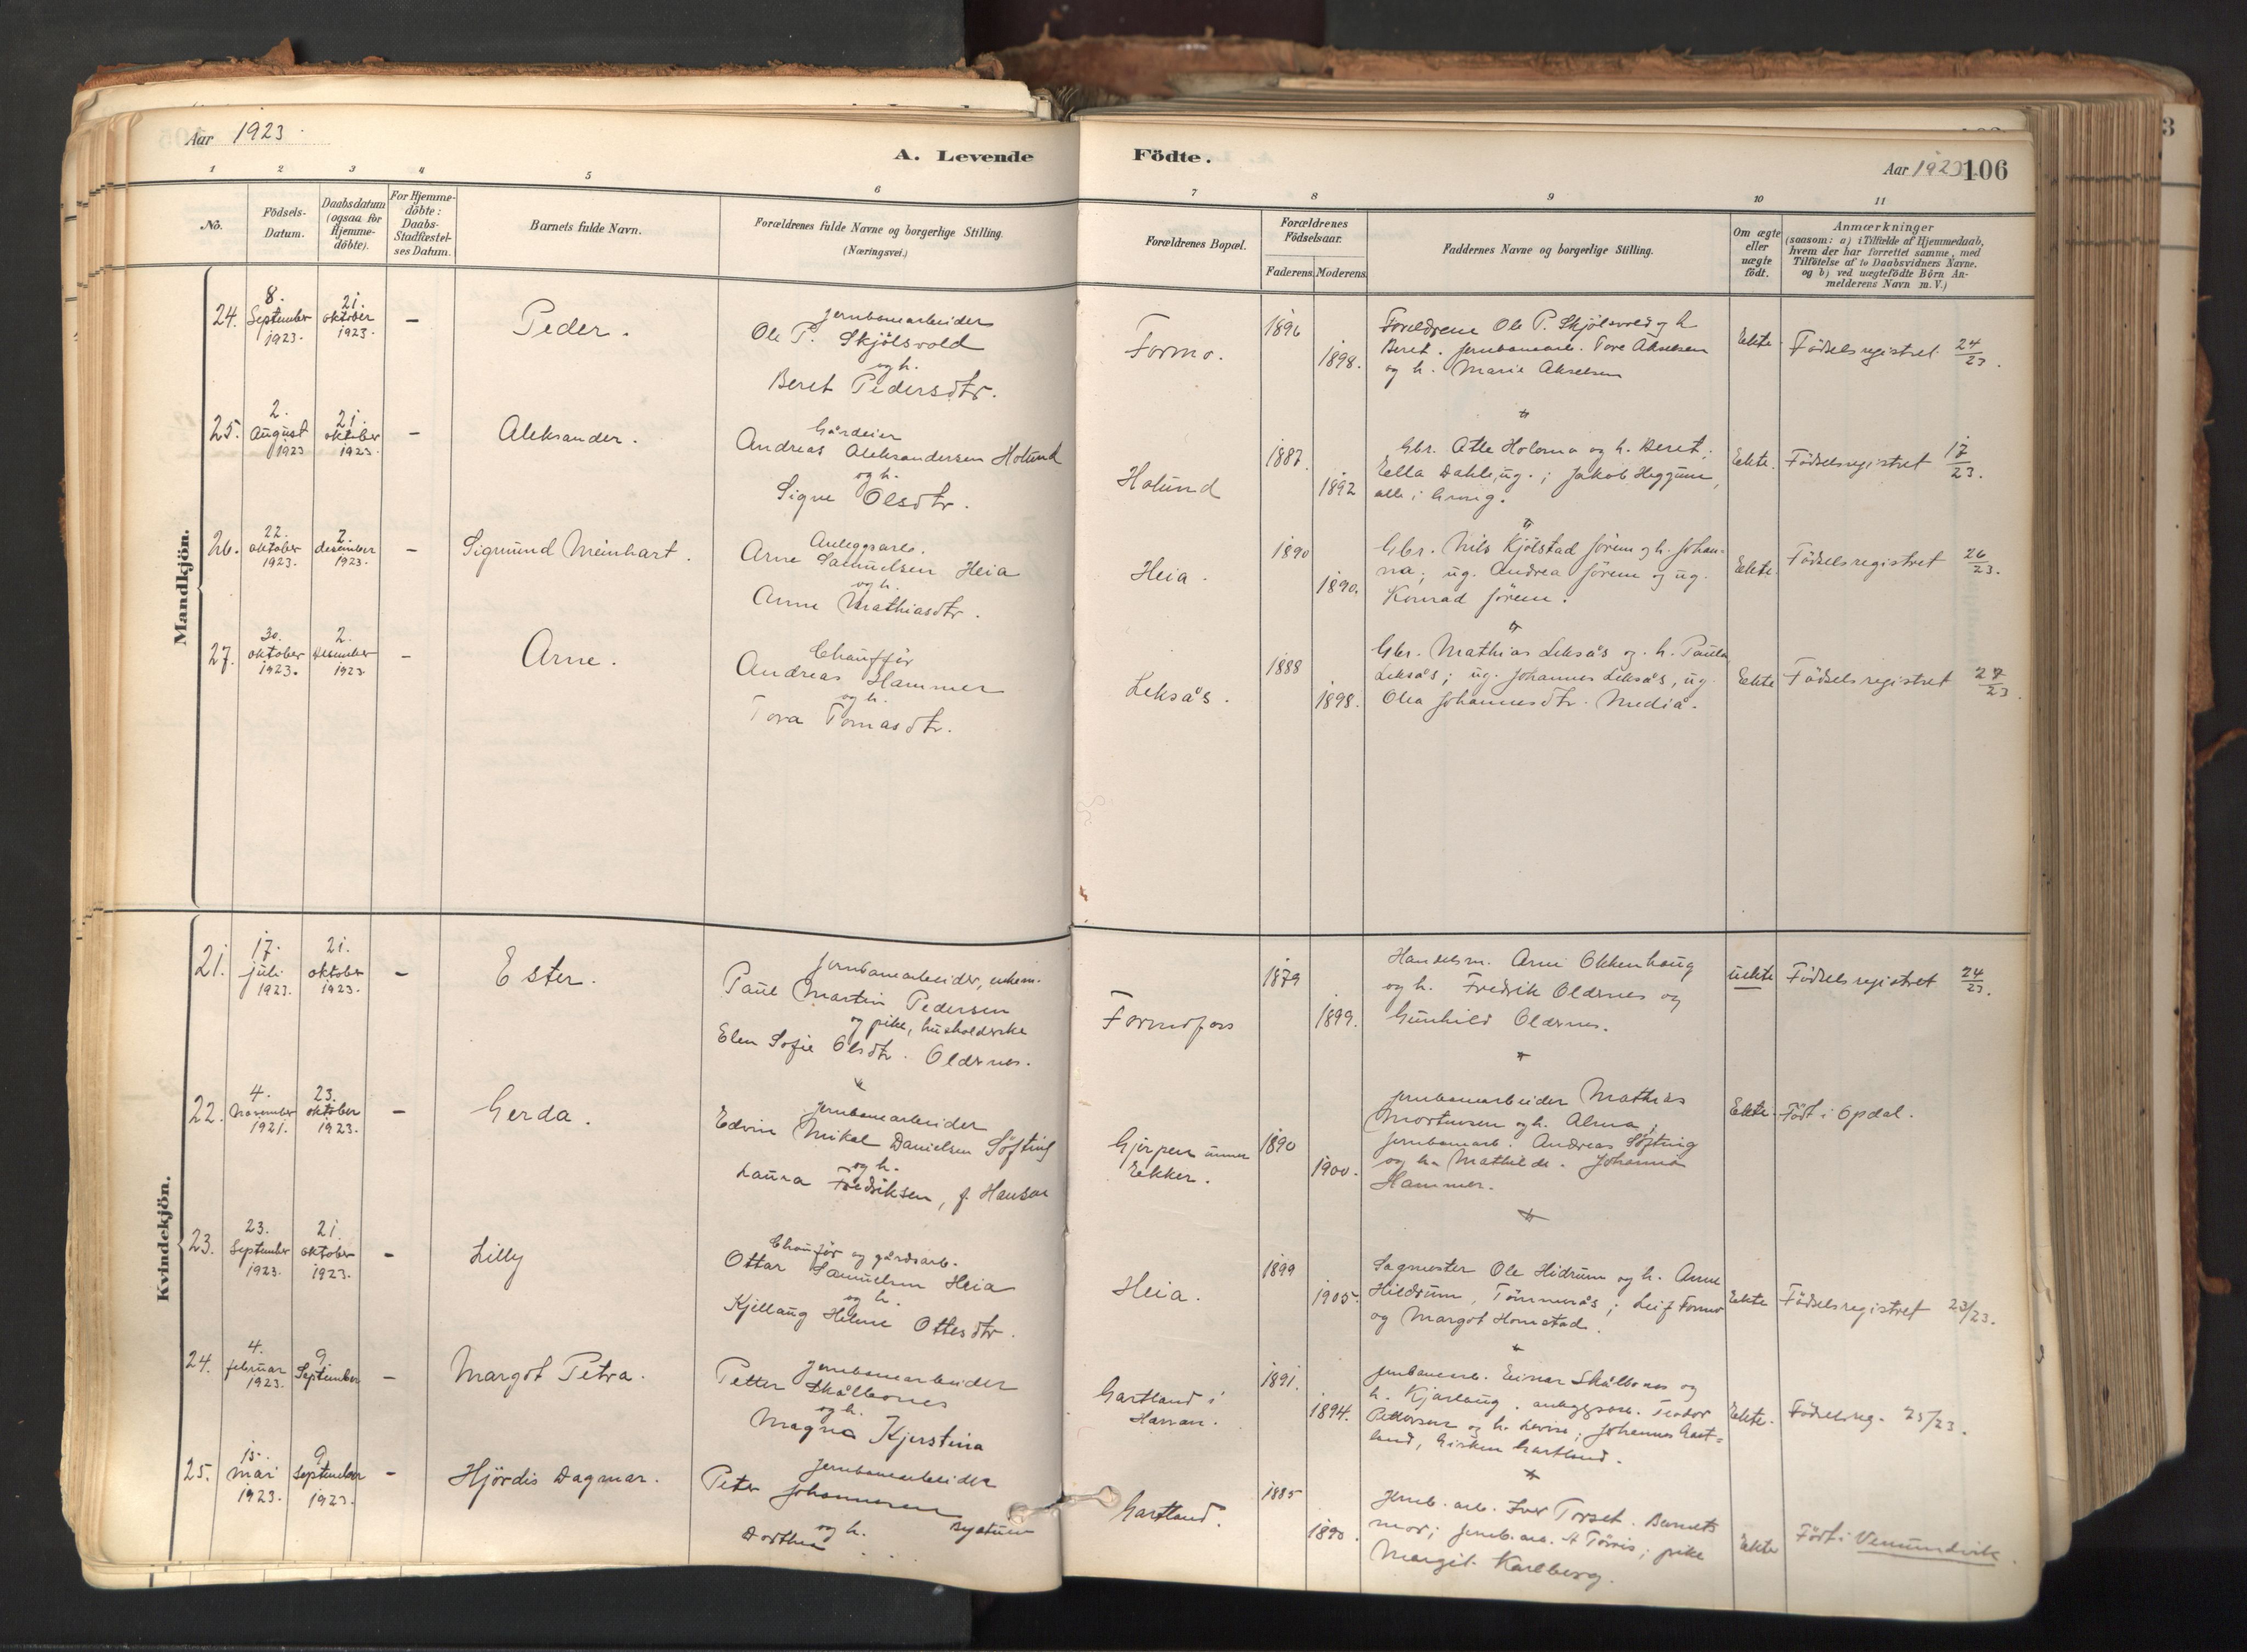 Aar 1923.
A. Levende
Födte.
Aar 1923.
106
1
2
3
4
5
6
7
8
9
10
11
No.
Födsels-
Datum.
Daabsdatum
(ogsaa for
Hjemme-
döbte).
For Hjemme-
döbte:
Daabs-
Stadfæstel-
ses Datum.
Barnets fulde Navn.
Forældrenes fulde Navne og borgerlige Stilling.
(Næringsvei.)
Forældrenes Bopæl.
Forældrenes
Födselsaar.
Faderens.
Moderens.
Faddernes Navne og borgerlige Stilling.
Om ægte
eller
uægte
födt.
Anmærkninger
(saasom: a) i Tilfælde af Hjemmedaab,
hvem der har forrettet samme, med
Tilføtelse af to Daabsvidners Navne.
og b) ved uægtefödte Börn An-
melderens Navn m. V.)
Mandkjön.
24.
8.
September
1923.
21.
oktober
1923.
-
Peder.
Jernbanearbeider
Ole P. Skjölsvold
og h.
Beret Pedersdtr.
Formo.
1896
1898.
Foreldrene Ole P. Skjölsvold og h
Beret. Jernbanearb. Tore Akselsen
og h. Marie Akselsen
Ekte
Födselsregistret 24/23.
25.
2.
August
1923
21.
oktober
1923.
-
Aleksander.
Gårdeier
Andreas Aleksandersen Holund
og h.
Signe Olsdtr.
Holund
1887.
1892
Gbr. Atle Holoma og h. Beret;
Eella Dahle, ug.; Jakob Heggum,
alle i Grong.
Ekte.
Födselsregistret 17/23.
26.
22.
oktober
1923.
2.
desember
1923.
-
Sigmund Meinhart.
Anleggsarb.
Arne Samuelsen Heia
og h.
Anne Mathiasdtr.
Heia.
1890
1890.
Gbr. Nils Kjölstad Jörem og h. Johan-
na; ug. Andrea Jörem og ug.
Konrad Jörem.
Ekte.
Födselsregistret 26/23.
27.
30.
oktober
1923.
2.
desember
1923
-
Arne.
Chaufför
Andreas Hammer
og h.
Tora Tomasdtr.
Leksås.
1888
1898.
Gbr. Mathias Leksås og h. Paula
Leksås; ug. Johannes Leksås, ug.
Olea Johannesdtr. Mediå.
Ekte
Födselsregistret 27/23.
Kvindekjön.
21.
17.
juli
1923.
21.
oktober
1923.
-
Ester.
Jernbanearbeider, enkem.
Paul Martin Pedersen
og pike, husholderske
Elen Sofie Olsdtr. Oldernes.
Formofoss
1879
1899.
Handelsm. Arne Okkenhaug
og h. Fredrik Oldernes og
Gunhild Oldernes.
uekte
Födselsregistret 24/23.
22.
4.
November
1921.
23.
oktober
1923.
-
Gerda.
Jernbanearbeider
Edvin Mikal Danielsen Söfting
og h.
Laura Fredriksen, f. Hansen
Gjerpen
Ekker.
1890
1900.
Jernbanearbeider Mathias
Mortensen og h. Alma;
Jernbanearb. Andreas Söfting
og h. Mathilde. Johanna
Hammer.
Ekte.
Födt i Opdal.
23.
23.
September
1923.
21.
oktober
1923.
-
Lilly
Chaufför og gårdsarb.
Ottar Samuelsen Heia
og h.
Kjellaug Helene Ottesdtr.
Heia.
1899
1905.
Sagmester Ole Hildrum og h. Anne
Hildrum, Tömmerås; Leif Formo
og Margot Homstad.
Ekte
Födselsregistret 23/23.
24.
4.
februar
1923.
9
September
-
Margot Petra.
Jernbanearbeider
Petter Skålbones
og h.
Magna Kjerstina
Gartland i
Harran.
1891.
1894.
Jernbanearb. Einar Skålbones og
h. Kjærlaug. anleggsarb. Teodor
Pettersen og h. Lovise; Johannes Gart-
land, Gisken Gartland.
Ekte.
Födselsreg. 25/23.
25.
15.
mai
1923.
9
September
1923.
-
Hjördis Dagmar.
Jernbanearbeider
Peter Johannesen
og h.
Dorthea
Gartland.
1885
1890.
Jernb. arb. Iver Torset. Barnets
mor; Jernb. arb. A Törris; pike
Margit Karlberg.
Ekte
Födt i Vemundvik.